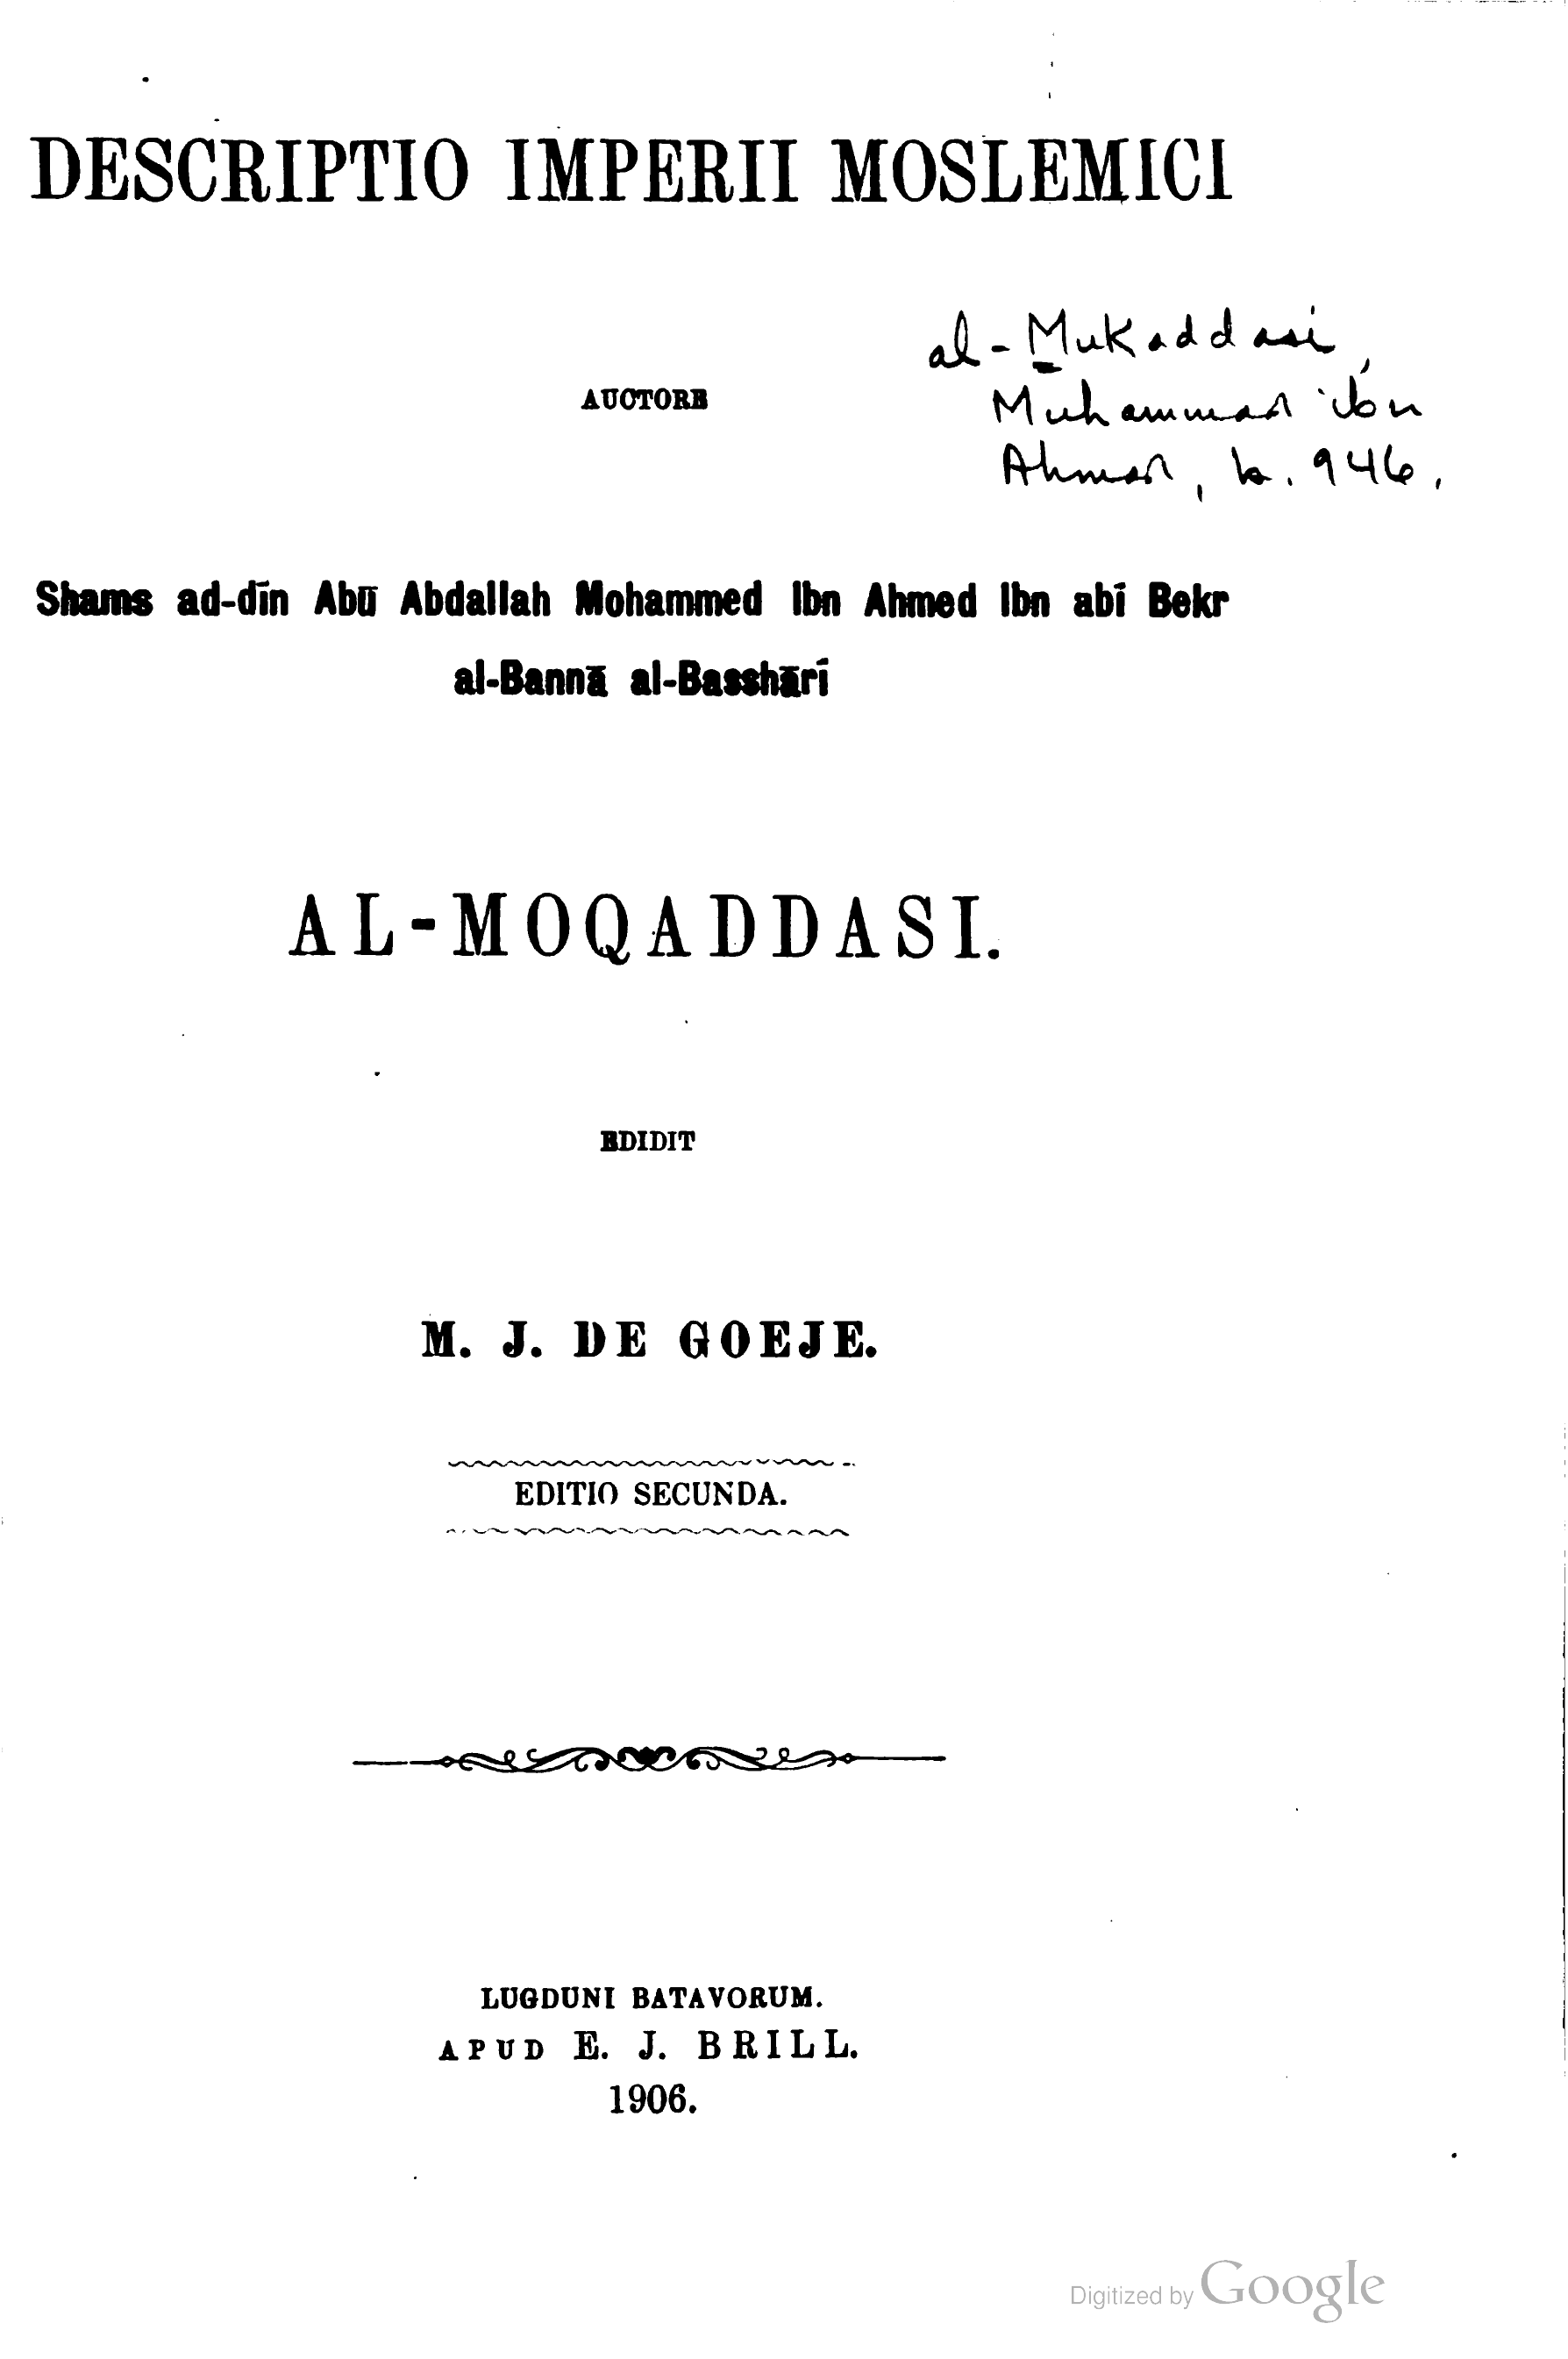 DESCRIPTIO IMPERII MOSLEMICI
al-Mukaddasi,
Muhammad ibn
Ahmad, b. 946.
AUCTORE
Shams ad-dīn Abū Abdallah Mohammed Ibn Ahmed Ibn abī Bekr
al-Bannā al-Basshārī
AL-MOQADDASI.
EDIDIT
M. J. DE GOEJE.
EDITIO SECUNDA.
LUGDUNI BATAVORUM.
APUD E. J. BRILL.
1906.
Digitized by Google